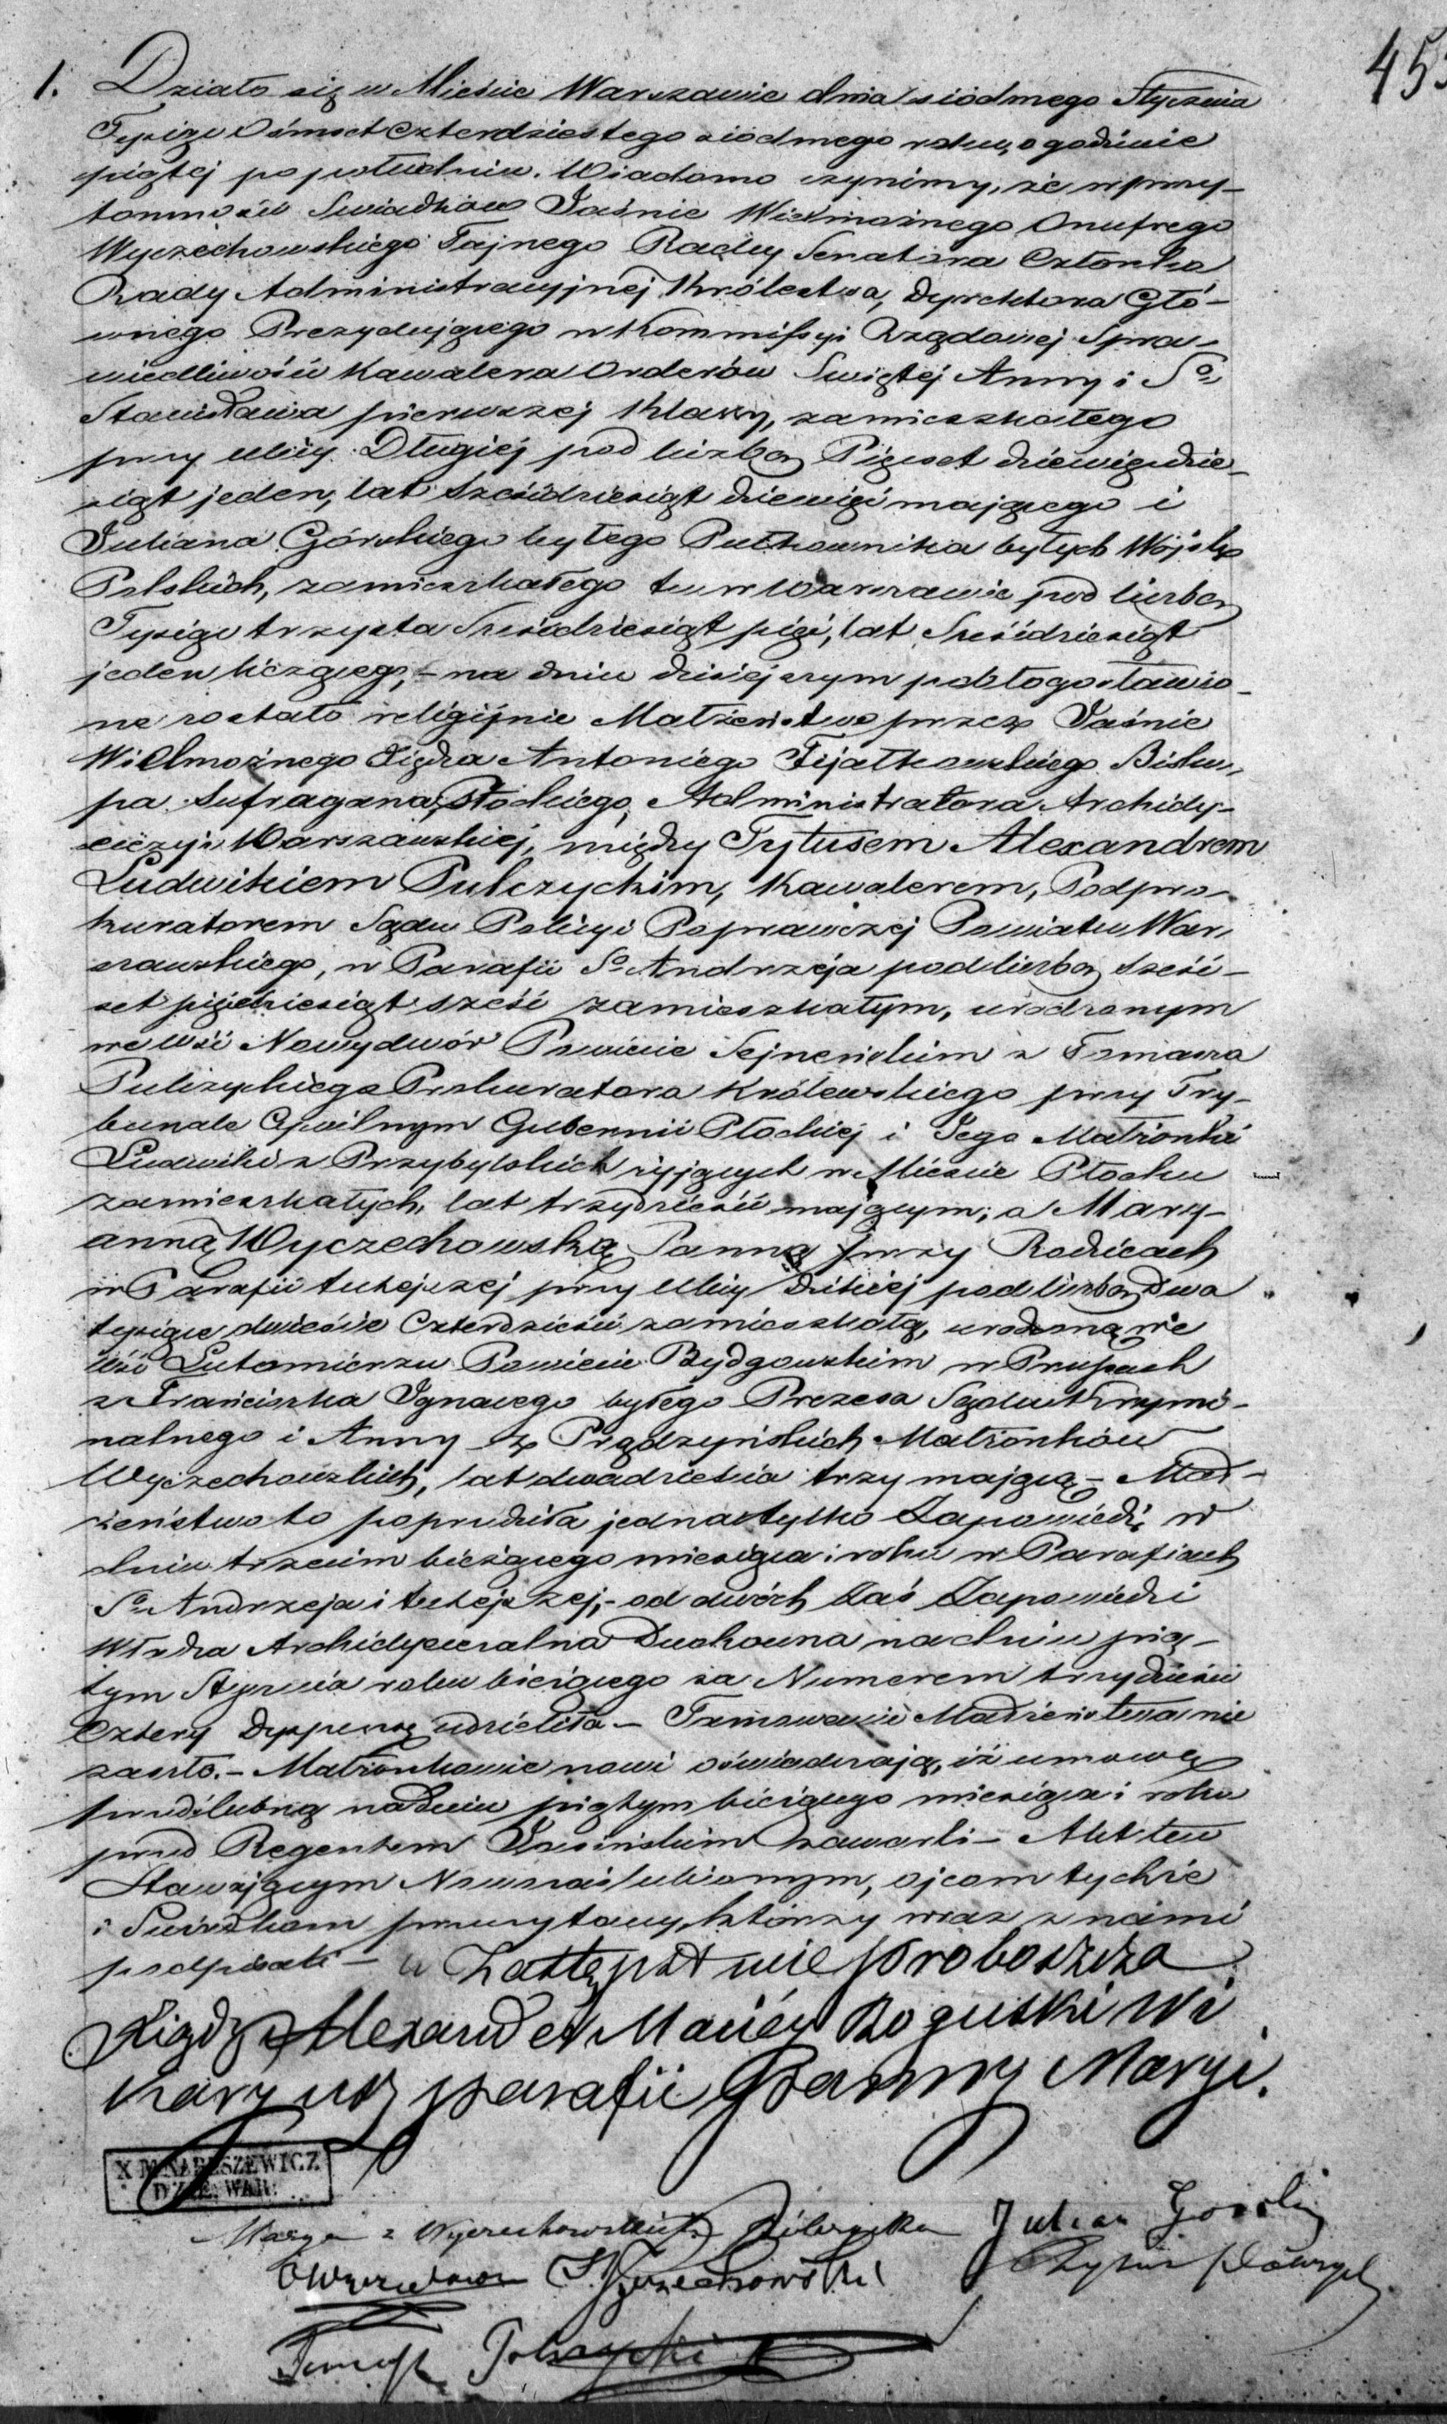 45
1. Działo się w Mieście Warszawie dnia siódmego Stycznia
Tysiąc Ośmset Czterdziestego siódmego roku, o godzinie
piątej po południu. Wiadomo czynimy, że w przy-
tomności Świadków Jaśnie Wielmożnego Onufrego
Wyczechowskiego Tajnego Radcy Senatora Członka
Rady Administracyjnej Królestwa, Dyrektora Głó-
wnego Prezydującego w Kommissyi Rządowej Spra-
wiedliwości Kawalera Orderów Świętej Anny i Sgo
Stanisława pierwszej Klassy, zamieszkałego
przy ulicy Długiej pod liczbą Pięćset dziewięćdzie-
siąt jeden, lat sześćdziesiąt dziewięć mającego i
Juliana Górskiego byłego Pułkownika byłych Wojsk
Polskich, zamieszkałego tu w Warszawie pod liczbą
Tysiąc trzysta sześćdziesiąt pięć, lat sześćdziesiąt
jeden liczącego, - na dniu dzisiejszym pobłogosławio-
ne zostało religijnie Małżeństwo przez Jaśnie
Wielmożnego Księdza Antoniego Fijałkowskiego Bisku-
pa Sufragana Płockiego, Administratora Archidy-
ecezyi Warszawskiej, między Tytusem Alexandrem
Ludwikiem Pulczyckim, Kawalerem, Podpro-
kuratorem Sądu Policyi Poprawczej Powiatu War-
szawskiego, w Parafii Sgo Andrzeja pod liczbą sześć-
set pięćdziesiąt sześć zamieszkałym, urodzonym
we wsi Nowydwór Powiecie Sejneńskim z Tomasza
Pulczyckiego Prokuratora Królewskiego przy Try-
bunale Cywilnym Gubernii Płockiej i Jego Małżonki
Ludwiki z Przybylskich żyjących w Mieście Płocku
zamieszkałych, lat trzydzieści mającym; a Mary-
anną Wyczechowską Panną przy Rodzicach
w Parafii tutejszej przy ulicy Dzikiej pod liczbą Dwa
tysiące dwieście Czterdzieści zamieszkałą, urodzoną we
wsi Lutomierzu Powiecie Bydgowskim w Prusach
z Franciszka Ignacego byłego Prezesa Sądu Krymi-
nalnego i Anny z Prądzyńskich Małżonków
Wyczechowskich, lat dwadzieścia trzy mającą - Mał-
żeństwo to poprzedziła jedna tylko Zapowiedź w
dniu trzecim bieżącego miesiąca i roku w Parafiach
Sgo Andrzeja i tutejszej, - od dwóch zaś Zapowiedzi
Władza Archidyecezalna Duchowna na dniu pią-
tym Stycznia roku bieżącego za Numerem trzydzieści
Cztery Dyspensę udzieliła - Tamowanie Małżeństwa nie
zaszło. - Małżonkowie nowi oświadczają, iż umowę
przedślubną na dniu piątym bieżącego miesiąca i roku
przed Regentem Jasińskim zawarli - Akt ten
Stawającym Nowozaślubionym, ojcom tychże
i Świadkom przeczytany, którzy wraz z nami
podpisali - w Zastępstwie proboszcza
Xiądz Alexander Maciej Roguski Wi
karyusz parafii Panny Maryi.
X M. NARUSZEWICZ
DZIE. WAR.
Marya z Wyczechowskich Pulczycka Julian Gorski
OWyczechowski Wyczechowski Tytus Pulczycki
Tomasz Pulczycki